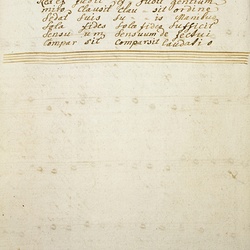 Rex et Jubil Jubil gentium
miro Clausit Clau sit ordine
Se dat suis su is manibus
Sola fides Sola fides sufficit
Sensu um Sensuum de fectui
Compar sit Comparsit laudati o